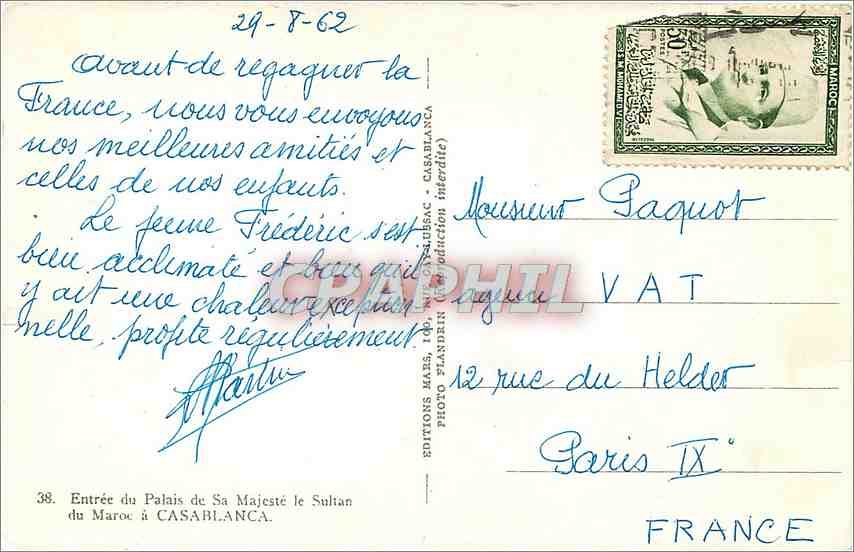 29-8-62
avant de regagner la
France, nous vous envoyons
nos meilleures amitiés et
celles de nos enfants.
Le jeune Frédéric s'est
bien acclimaté et bien qu'il
y ait une chaleur exception
nelle, profite régulièrement.
Martin
38. Entrée du Palais de Sa Majesté le Sultan
du Maroc à CASABLANCA.
EDITIONS MARS, RUE GAY-LUSSAC - CASABLANCA
PHOTO FLANDRIN (Reproduction interdite)
CPAPHIL
MAROC
POSTES
30F
S.M. MOHAMED V
Monsieur Paquot
agence VAT
12 rue du Helder
Paris IX°
FRANCE